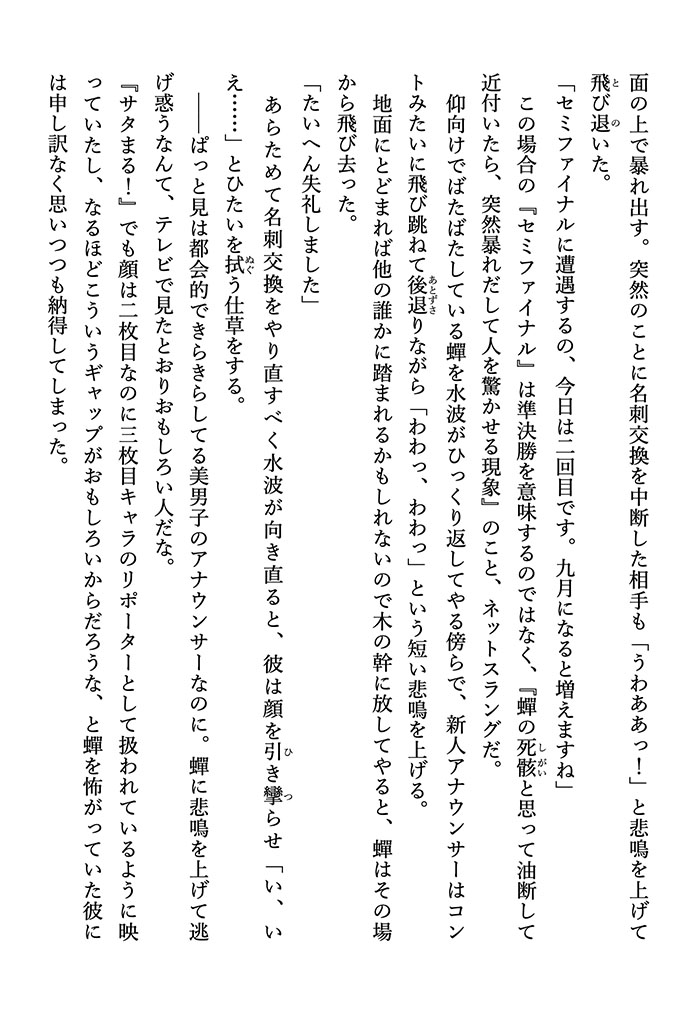 面の上で暴れ出す。突然のことに名刺交換を中断した相手も「うわああっ！」と悲鳴を上げて
飛び退いた。
「セミファイナルに遭遇するの、今日は二回目です。九月になると増えますね」
この場合の『セミファイナル』は準決勝を意味するのではなく、『蟬の死骸と思って油断して
近付いたら、突然暴れだして人を驚かせる現象』のこと、ネットスラングだ。
仰向けでばたばたしている蟬を水波がひっくり返してやる傍らで、新人アナウンサーはコン
トみたいに飛び跳ねて後退りながら「わわっ、わわっ」という短い悲鳴を上げる。
地面にとどまれば他の誰かに踏まれるかもしれないので木の幹に放してやると、蟬はその場
から飛び去った。
「たいへん失礼しました」
あらためて名刺交換をやり直すべく水波が向き直ると、彼は顔を引き攣らせ「い、い
え……」とひたいを拭う仕草をする。
――ぱっと見は都会的できらきらしてる美男子のアナウンサーなのに。蟬に悲鳴を上げて逃
げ惑うなんて、テレビで見たとおりおもしろい人だな。
『サタまる！』でも顔は二枚目なのに三枚目キャラのリポーターとして扱われているように映
っていたし、なるほどこういうギャップがおもしろいからだろうな、と蟬を怖がっていた彼に
は申し訳なく思いつつも納得してしまった。